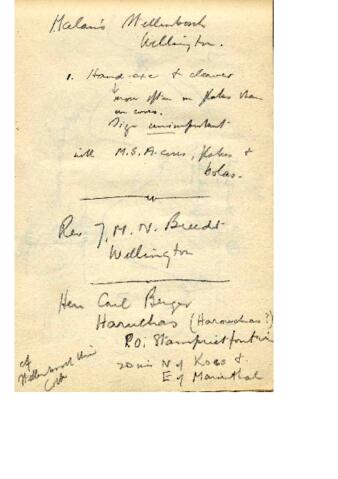 Malan's Stellenbosch
Wellington.
1. Hand-axe & cleaver
more often on flakes than
on cores.
Sign unimportant
with M.S.A. cores, flakes &
bolas.
Rev J. M. N. Breedt
Wellington
Herr Carl Berger
Haruchas (Harouchas?)
P.O. Stampriet fontein
20 mis N of Koes &
E of Marienthal
cf
Stellenbosch Univ
Coll